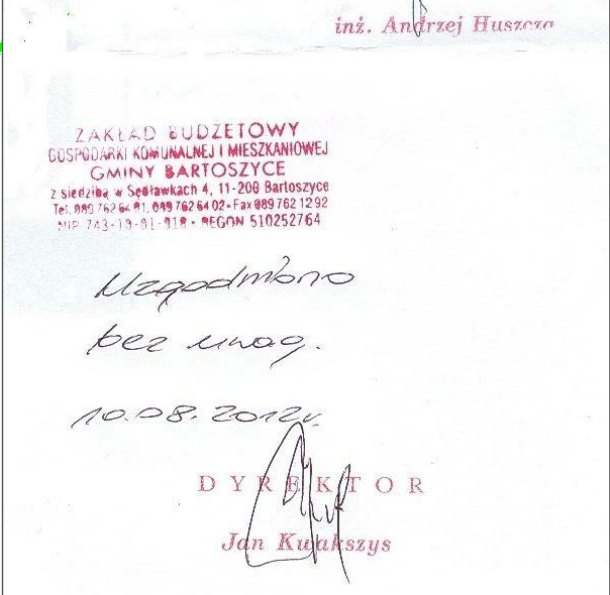 inż. Andrzej Huszcza
ZAKŁAD BUDŻETOWY
GOSPODARKI KOMUNALNEJ I MIESZKANIOWEJ
GMINY BARTOSZYCE
z siedzibą w Sędławkach 4, 11-200 Bartoszyce
Tel. 089 762 64 01, 089 762 64 02 • Fax 089 762 12 92
NIP 743-10-01-018 • REGON 510252764
Uzgodniono
bez uwag.
10.08.2012r.
DYREKTOR
Jan Kwakszys